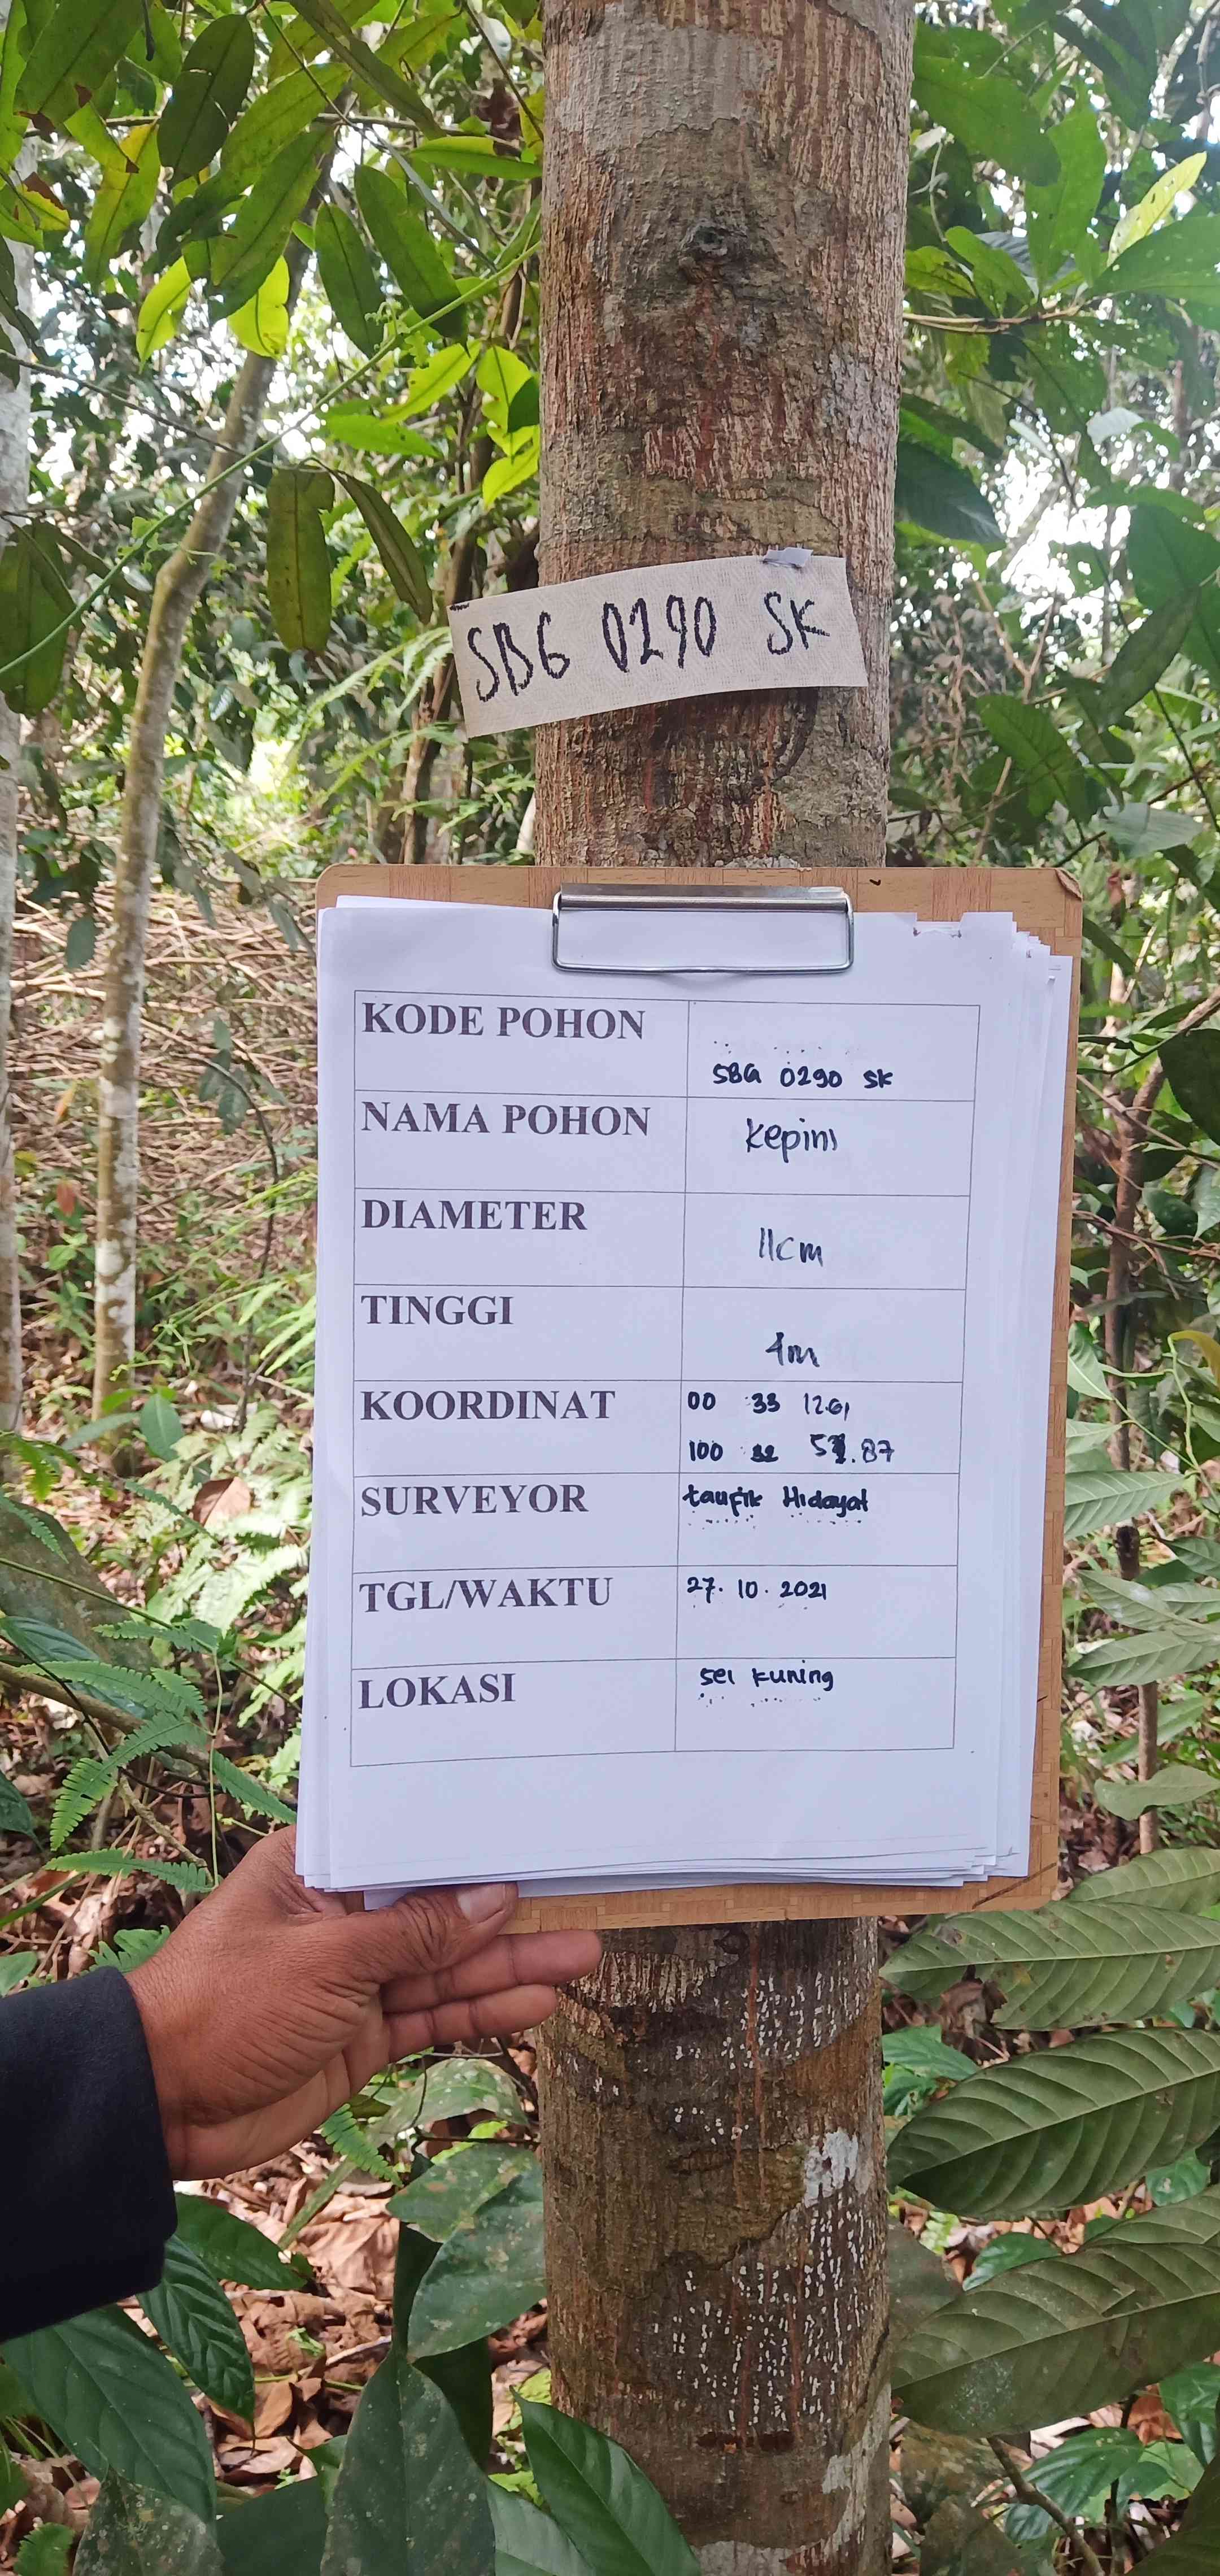 SBG 0290 SK
KODE POHON
SBG 0290 SK
NAMA POHON
Kepini
DIAMETER
11cm
TINGGI
4m
KOORDINAT
00 33 12.61
100 32 .87
SURVEYOR
taufik Hidayat
TGL/WAKTU
27.10.2021
LOKASI
sei kuning